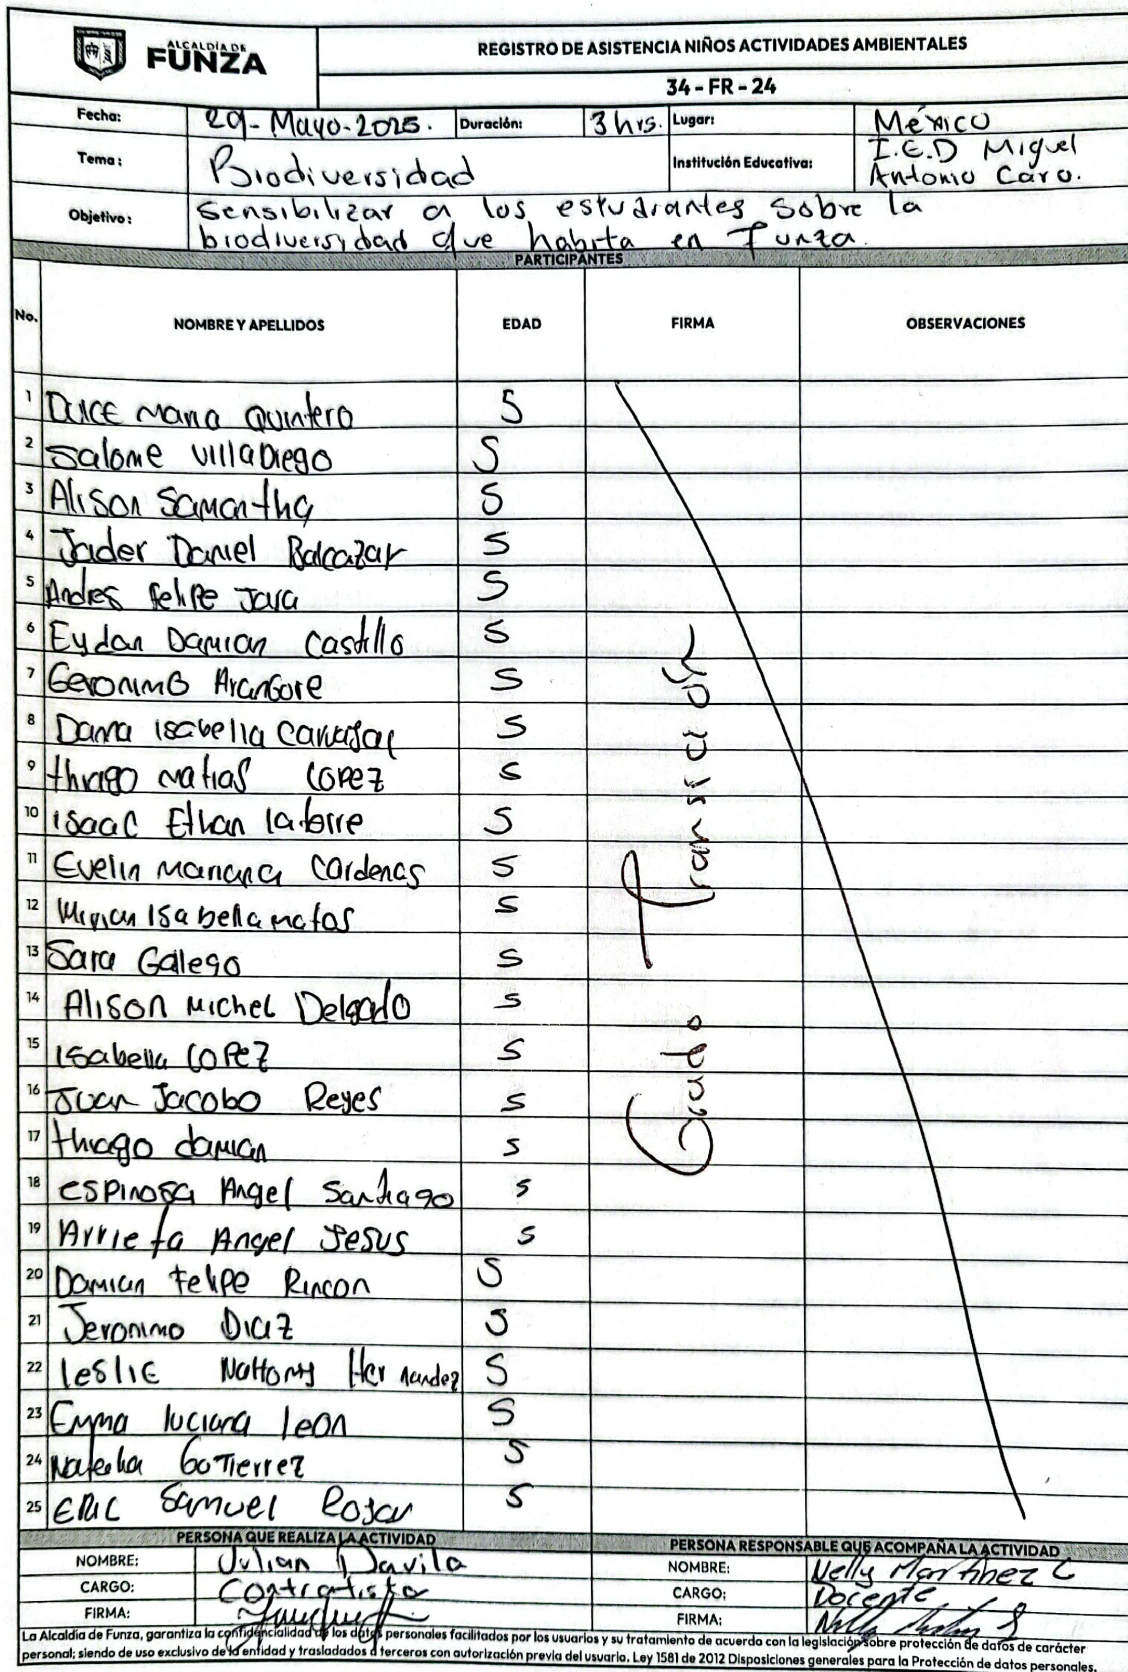 ALCALDÍA DE
FUNZA
REGISTRO DE ASISTENCIA NIÑOS ACTIVIDADES AMBIENTALES
34 - FR - 24
Fecha: 29-Mayo-2025. Duración: 3 hrs. Lugar: México
Tema: Biodiversidad Institución Educativa: I.E.D Miguel
Antonio Caro.
Objetivo: Sensibilizar a los estudiantes sobre la
biodiversidad que habita en Funza.
PARTICIPANTES
No. NOMBRE Y APELLIDOS EDAD FIRMA OBSERVACIONES
1 Dulce Maria Quintero 5
2 Salome VillaDiego 5
3 Alison Samantha 5
4 Jader Daniel Balcazar 5
5 Andres Felipe Jara 5
6 Eydan Damian Castillo 5
7 Geronimo 5
8 Dana Isabella Carvajal 5
9 thiago Matias Lopez 5
10 Isaac Ethan latorre 5
11 Evelin Mariana Cardenas 5
12 Isabella Matos 5
13 Sara Gallego 5
14 Alison Michel Delgado 5
15 Isabella Lopez 5
16 Juan Jacobo Reyes 5
17 thiago damian 5
18 Espinosa Angel Santiago 5
19 Arrieta Angel Jesus 5
20 Damian Felipe Rincon 5
21 Jeronimo Diaz 5
22 leslie Hernandez 5
23 Emma luciana leon 5
24 Gotierrez 5
25 Eric Samuel 5
Grado Transición
PERSONA QUE REALIZA LA ACTIVIDAD PERSONA RESPONSABLE QUE ACOMPAÑA LA ACTIVIDAD
NOMBRE: Julian Davila NOMBRE: Nelly Martinez C
CARGO: Contratista CARGO: Docente
FIRMA: FIRMA:
La Alcaldía de Funza, garantiza la confidencialidad de los datos personales facilitados por los usuarios y su tratamiento de acuerdo con la legislación sobre protección de datos de carácter
personal; siendo de uso exclusivo de la entidad y trasladados a terceros con autorización previa del usuario. Ley 1581 de 2012 Disposiciones generales para la Protección de datos personales.